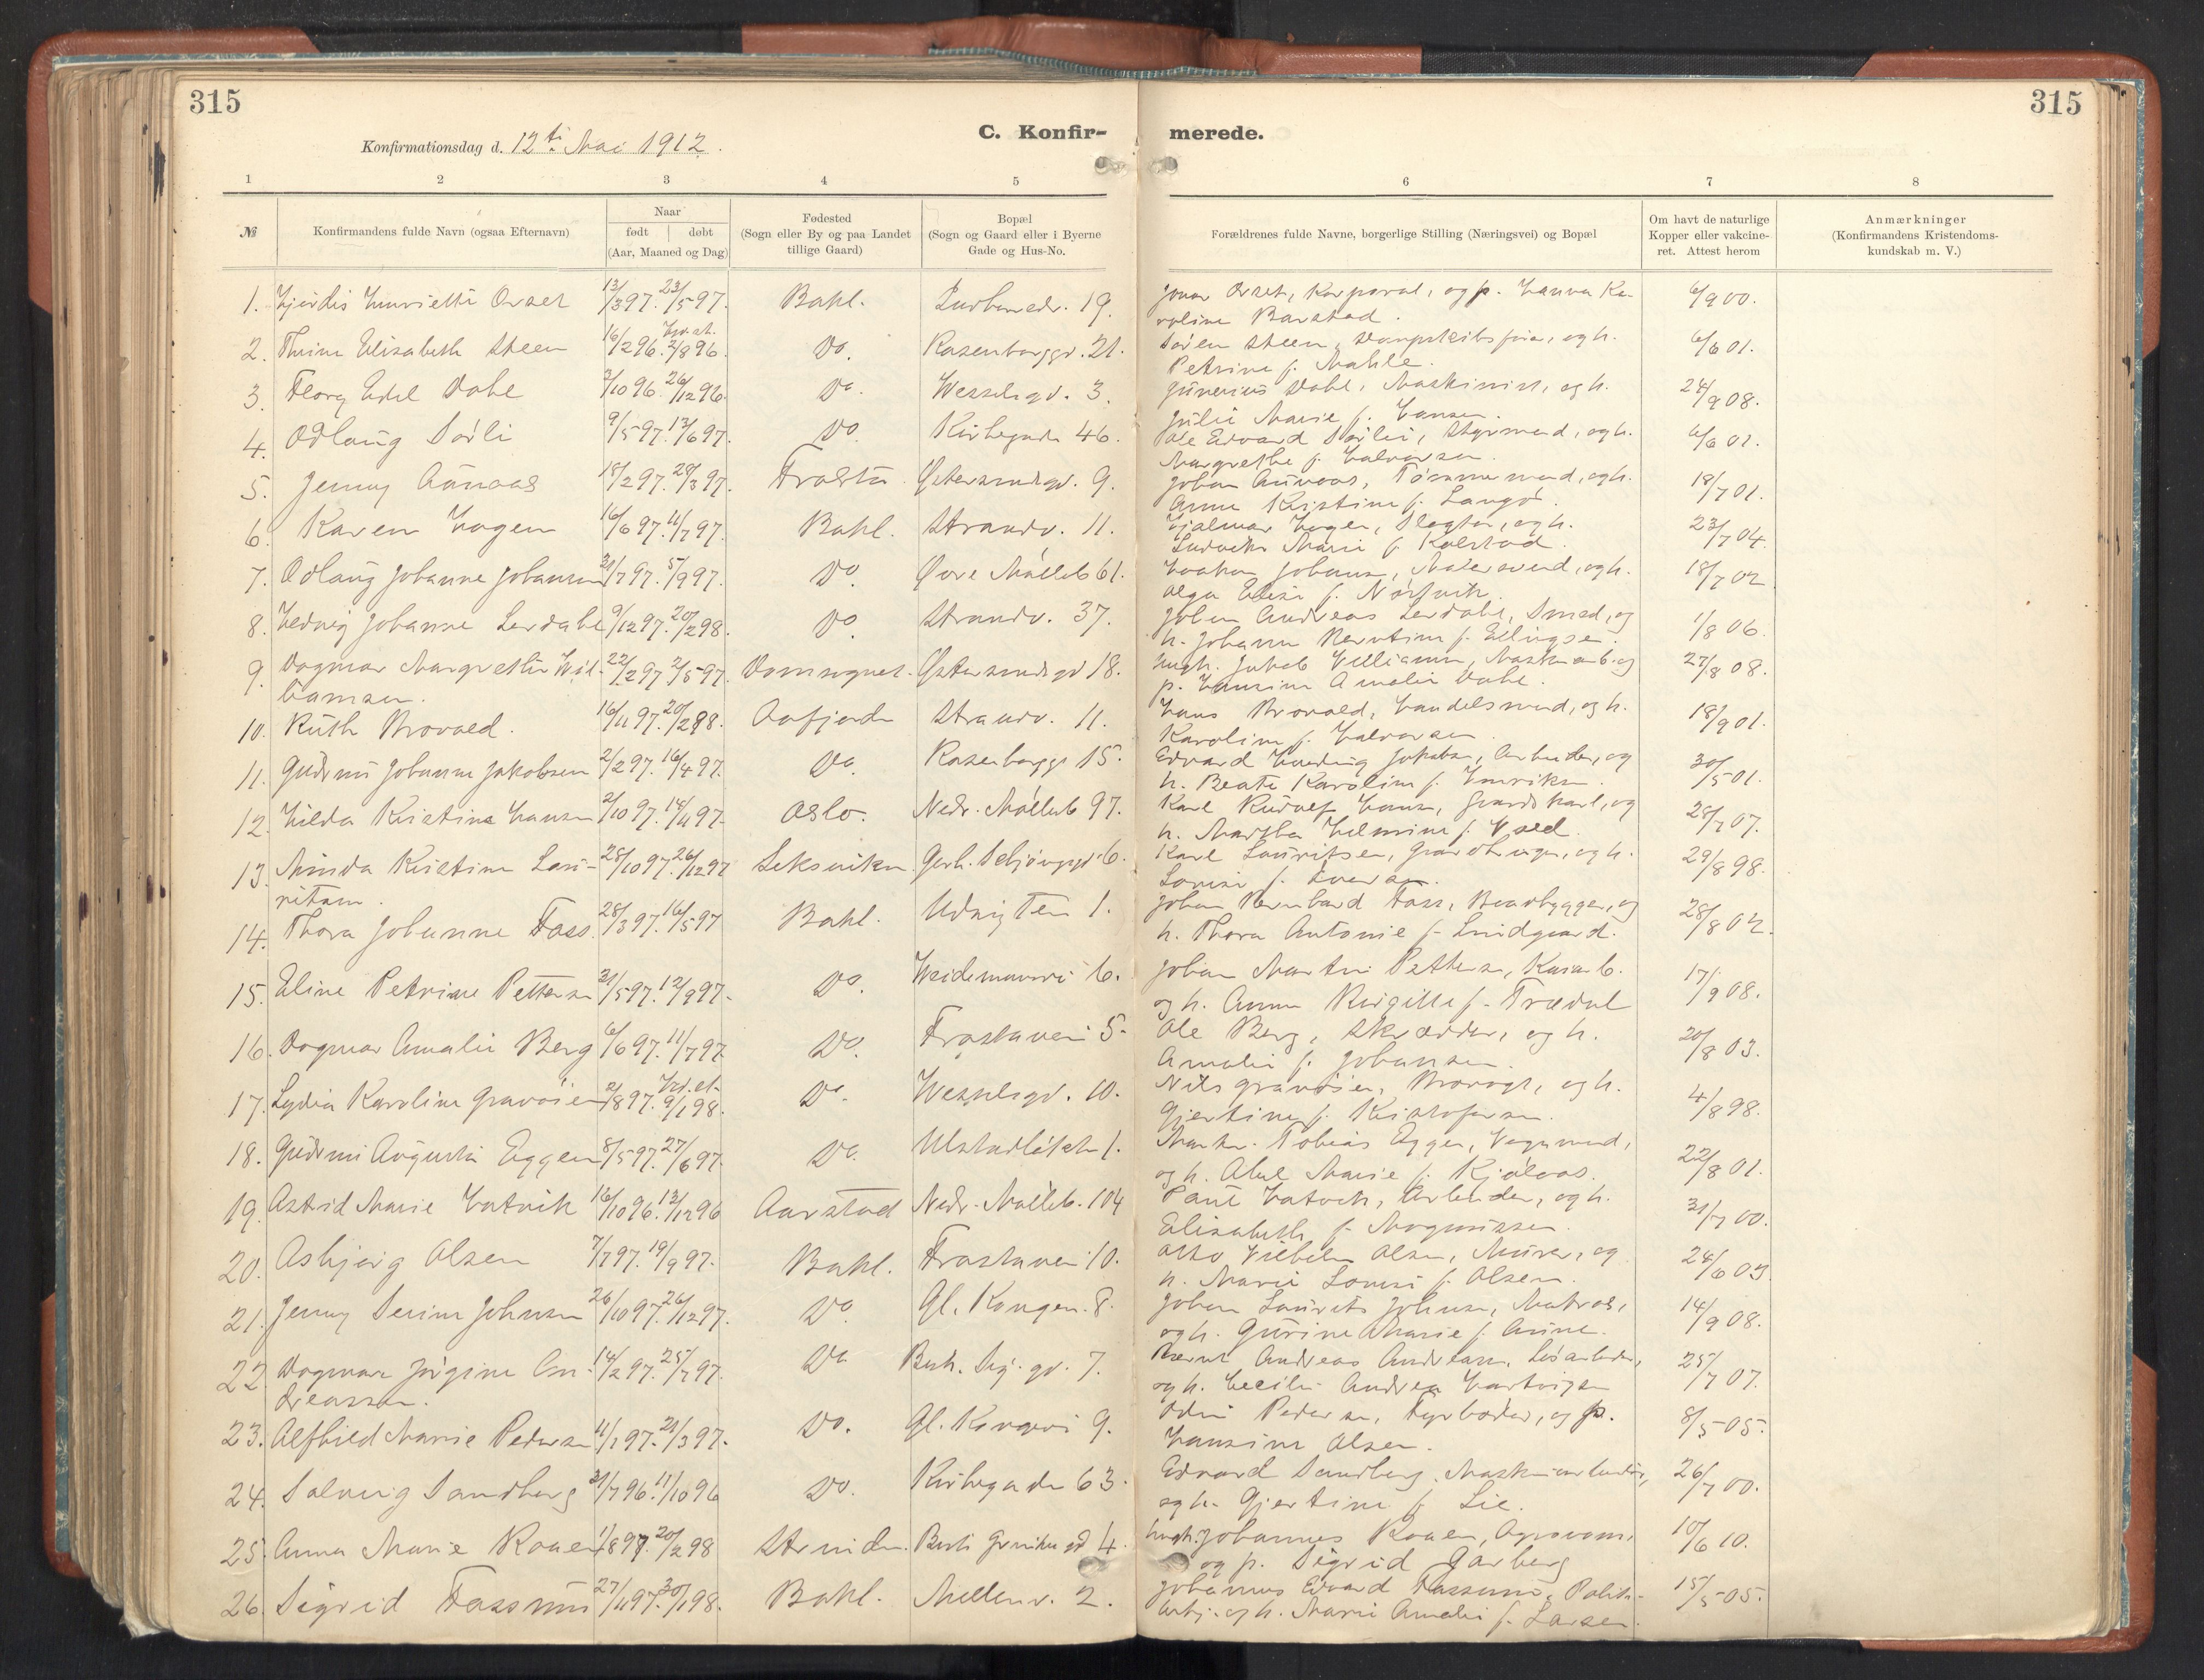 315
315
C. Konfir-
merede.
Konfirmationsdag d. 12te Mai 1912.
1 2 3 4 5 6 7 8
№
Konfirmandens fulde Navn (ogsaa Efternavn)
Naar
født døbt
(Aar, Maaned og Dag)
Fødested
(Sogn eller By og paa Landet
tillige Gaard)
Bopæl
(Sogn og Gaard eller i Byerne
Gade og Hus-No.
Forældrenes fulde Navne, borgerlige Stilling (Næringsvei) og Bopæl
Om havt de naturlige
Kopper eller vakcine-
ret. Attest herom
Anmærkninger
(Konfirmandens Kristendoms-
kundskab m. V.)
1. Hjørdis Henriette 13/3 97. 23/5 97. Bakl. 19. Karporal, og p. Hanna Ka- 6/9 00.
roline Barstad.
2. Elisabeth Steen 16/2 96. 2/8 96. Do. Rosenborggd. 21. Søren Steen, og h. 6/6 01.
Petrine f.
3. Edel Dahl 2/10 96. 26/12 96. Do. Wesselsgd. 3. Dahl, Maskinist, og h. 24/9 08.
Julie Marie f. Hansen.
4. Odlaug Sørli 9/5 97. 13/6 97. Do. Kirkegaden 46. Ole Edvard Sørli, Styrmand, og h. 6/6 01.
Margrethe f. Halvorsen
5. Jenny Aunaas 18/2 97. 28/3 97. Frosta. Østersundsgd. 9. Johan Aunaas, Tømmermand, og h. 18/7 01.
Anne Kristine f. Langø.
6. Karen Hagen 16/6 97. 11/7 97. Bakl. Strandv. 11. Hjalmar Hagen, Slagter, og h. 23/7 04.
Marie f. Kolstad.
7. Odlaug Johanne Johansen 21/7 97. 5/9 97. Do. Øvre Mølleb. 61. Haakon Johansen, Malersvend, og h. 18/7 02
Olga Elise f. Nørvik.
8. Hedvig Johanne Lerdahl 9/12 97. 20/2 98. Do. Strandv. 37. Johan Andreas Lerdahl, Smed, og 1/8 06.
h. Johanna Berntine f. Ellingsen.
9. Dagmar Margrethe Wil- 22/2 97 2/5 97. Domsognet. Østersundsgd 18. Jakob Villiamsen, og 27/8 08.
liamsen. p. Hansine Amalie Dahl.
10. Ruth Brovold. 16/11 97. 20/2 98. Aafjorden Strandv. 11. Hans Brovold, Handelsmand, og h. 18/9 01.
Karoline f. Halvorsen
11. Gudrun Johanne Jakobsen 2/2 97. 16/4 97. Do. Rosenborggd 15. Edvard Jakobsen, Arbeider, og 30/5 01.
h. Beate Karoline f. Henriksen.
12. Hilda Kristine Hansen 2/10 97. 14/11 97. Oslo. Nedr. Mølleb 97. Karl Rudolf Hansen, Gaardskarl, og 28/7 07.
h. Martha Helmine f. Vold.
13. Minda Kristine Lau- 28/10 97. 26/12 97 Leksviken. Gerh. Schjøningsgd. 6. Karl Lauritsen, og h. 29/8 98.
ritsen. Lovise f. Iversen.
14. Thora Johanne Foss. 28/3 97. 16/5 97 Bakl. 1. Johan Bernhard Foss, og 28/8 02.
h. Thora Antonie f. Lundgaard.
15. Eline Petrine Pettersen 31/5 97. 12/9 97. Do. Weidemannsvei 6. Johan Martin Pettersen, 17/9 08.
og h. Anna Birgitte f.
16. Dagmar Amalie Berg 6/6 97. 11/7 97. Do. Frostaveien 5. Ole Berg, Skrædder, og h. 20/8 03.
Amalie f. Johansen.
17. Lydia Karoline Gravøien 2/8 97. 9/1 98. Do. Wesselsgd. 10. Nils Gravøien, og h. 4/8 98.
Gjertine f. Kristofersen.
18. Gudrun Augusta Eggen 8/5 97. 27/6 97. Do. Ulstadløkken 1. Tobias Eggen, Vognmand, 22/8 01.
og h. Marie f.
19. Astrid Marie Hatvik 16/10 96. 13/12 96 Aarstad Nedr. Mølleb. 104 Paul Hatvik, Arbeider, og h. 31/7 00.
Elisabeth f. Magnussen.
20. Asbjørg Olsen 7/7 97. 19/9 97. Bakl. Frostaveien 10. Otto Vilhelm Olsen, Murer, og 24/6 03.
h. Marie Lovise f. Olsen.
21. Jenny Serine Johnsen 26/10 97. 26/12 97. Do. Gl. Kongev. 8. Johan Laurits Johnsen, Matros, 14/9 08.
og h. Gurine Marie f. Aune.
22. Dagmar Jørgine An- 14/2 97. 25/7 97. Do. 7. Bernt Andreas Andreasen, Løsarbeider, 25/7 07.
dreassen. og h. Cecilie Andrea Hartvigsen
23. Alfhild Marie Pedersen 11/1 97. 21/3 97. Do. Gl. Kongevei 9. Odin Pedersen, Fyrbøder, og p. 8/5 05.
Hansine Olsen.
24. Solveig Sandberg 31/7 96. 11/10 96 Do. Kirkegaden 63. Edvard Sandberg, Maskinarbeider, 26/7 00.
og h. Gjertine f. Lie.
25. Anna Marie Roaen 1/8 97. 20/2 98 Strinden. 4. Johannes Roaen, 10/6 10.
og p. Sigrid Garberg
26. Sigrid Fossmo 27/11 97. 30/1 98. Bakl. Mellemv. 2. Johannes Edvard Politi- 15/5 05.
og h. Marie Amalie f. Larsen.